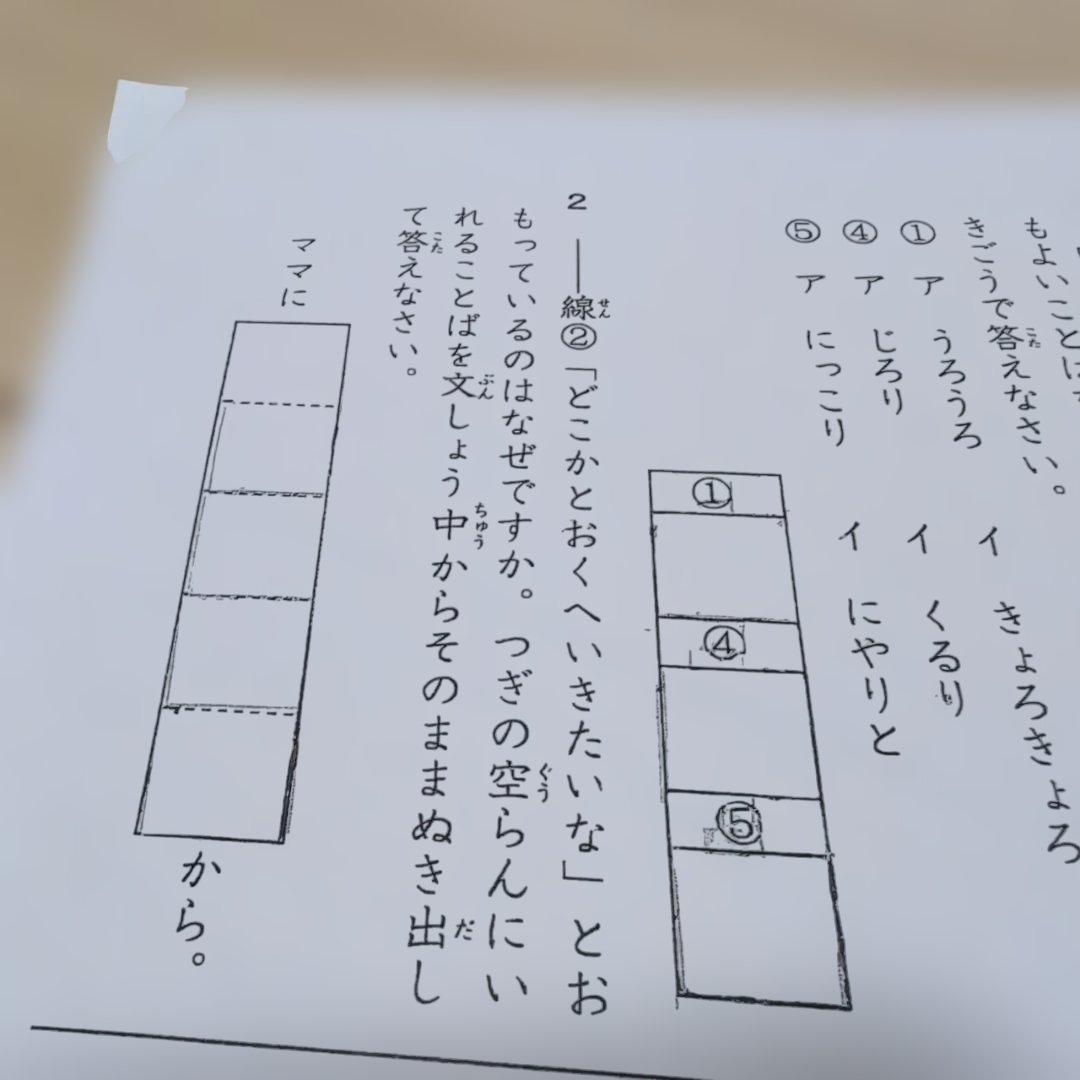 もよいことば
きごうで答えなさい。
① ア うろうろ イ きょろきょろ
④ ア じろり イ くるり
⑤ ア にっこり イ にやりと
①
④
⑤
2 ──線②「どこかとおくへいきたいな」とお
もっているのはなぜですか。つぎの空らんにい
れることばを文しょう中からそのままぬき出し
て答えなさい。
ママに
から。